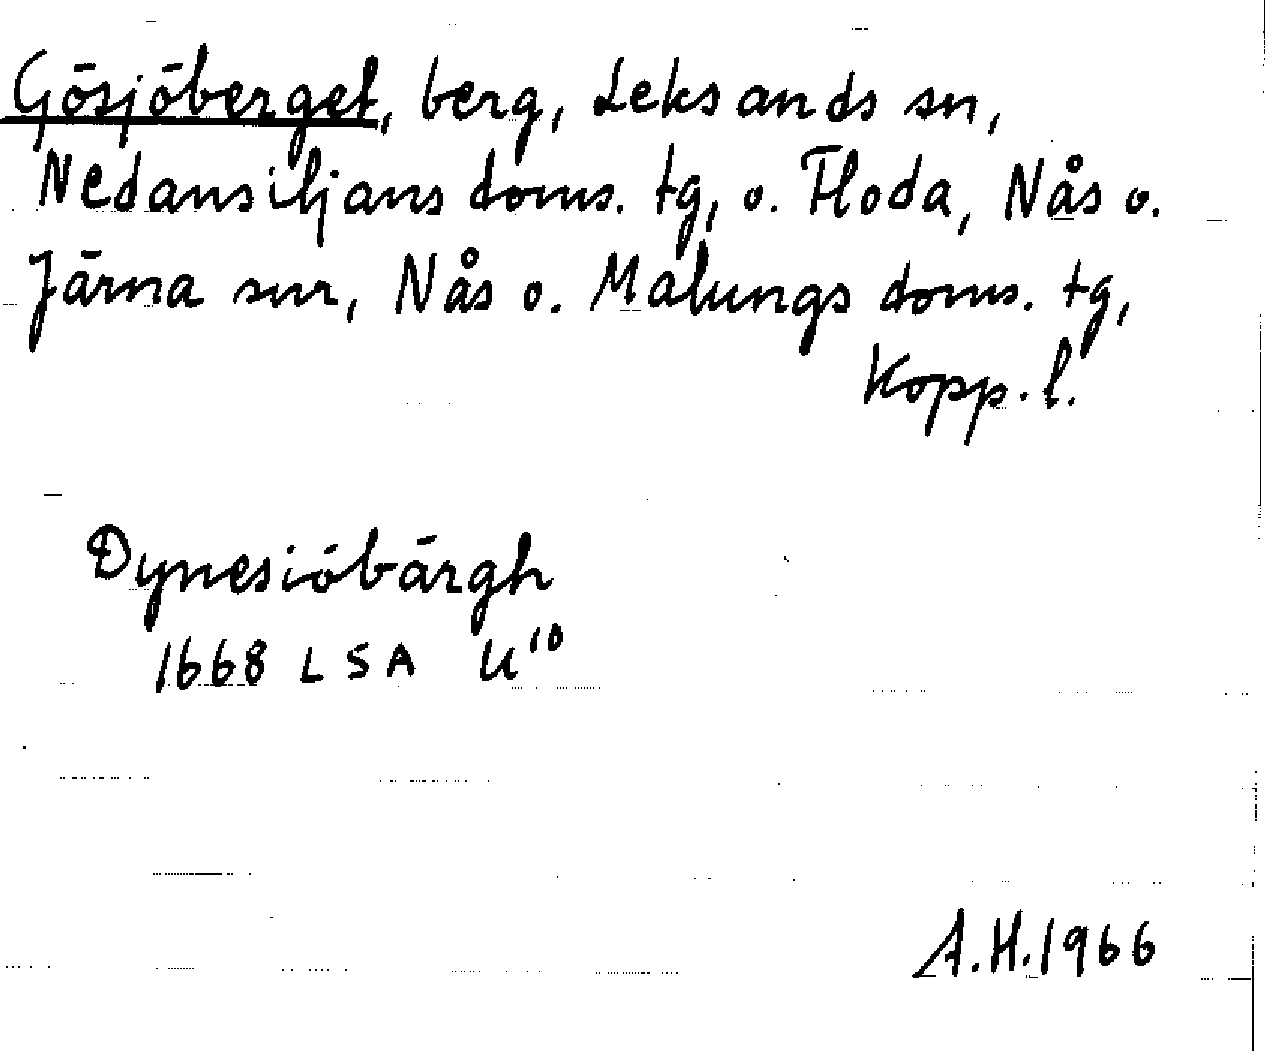 Gösjöberget, berg, Leksands sn,
Nedansiljans doms. tg, o. Floda, Nås o.
Järna snr, Nås o. Malungs doms. tg,
Kopp. l.
Dynesiöbärgh
1668 LSA U¹⁰
A.H. 1966